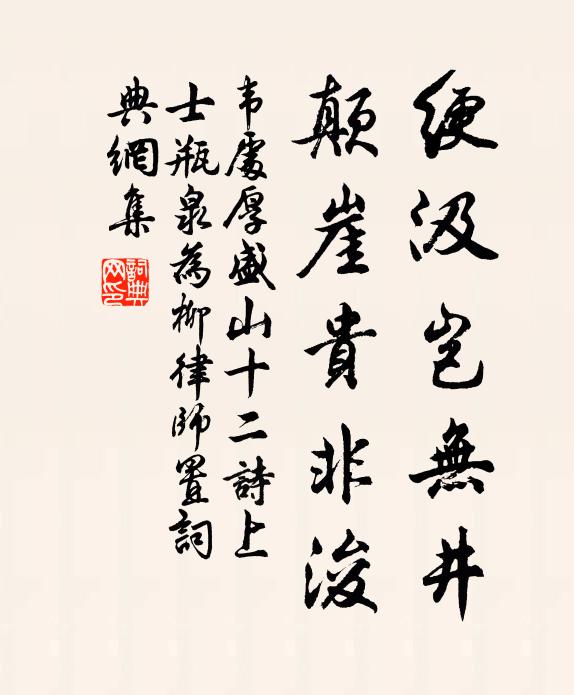 綆汲豈無井
顛崖貴非浚
韦處厚盛山十二詩上
士瓶泉為柳律師置詞
典網集
詞典網印